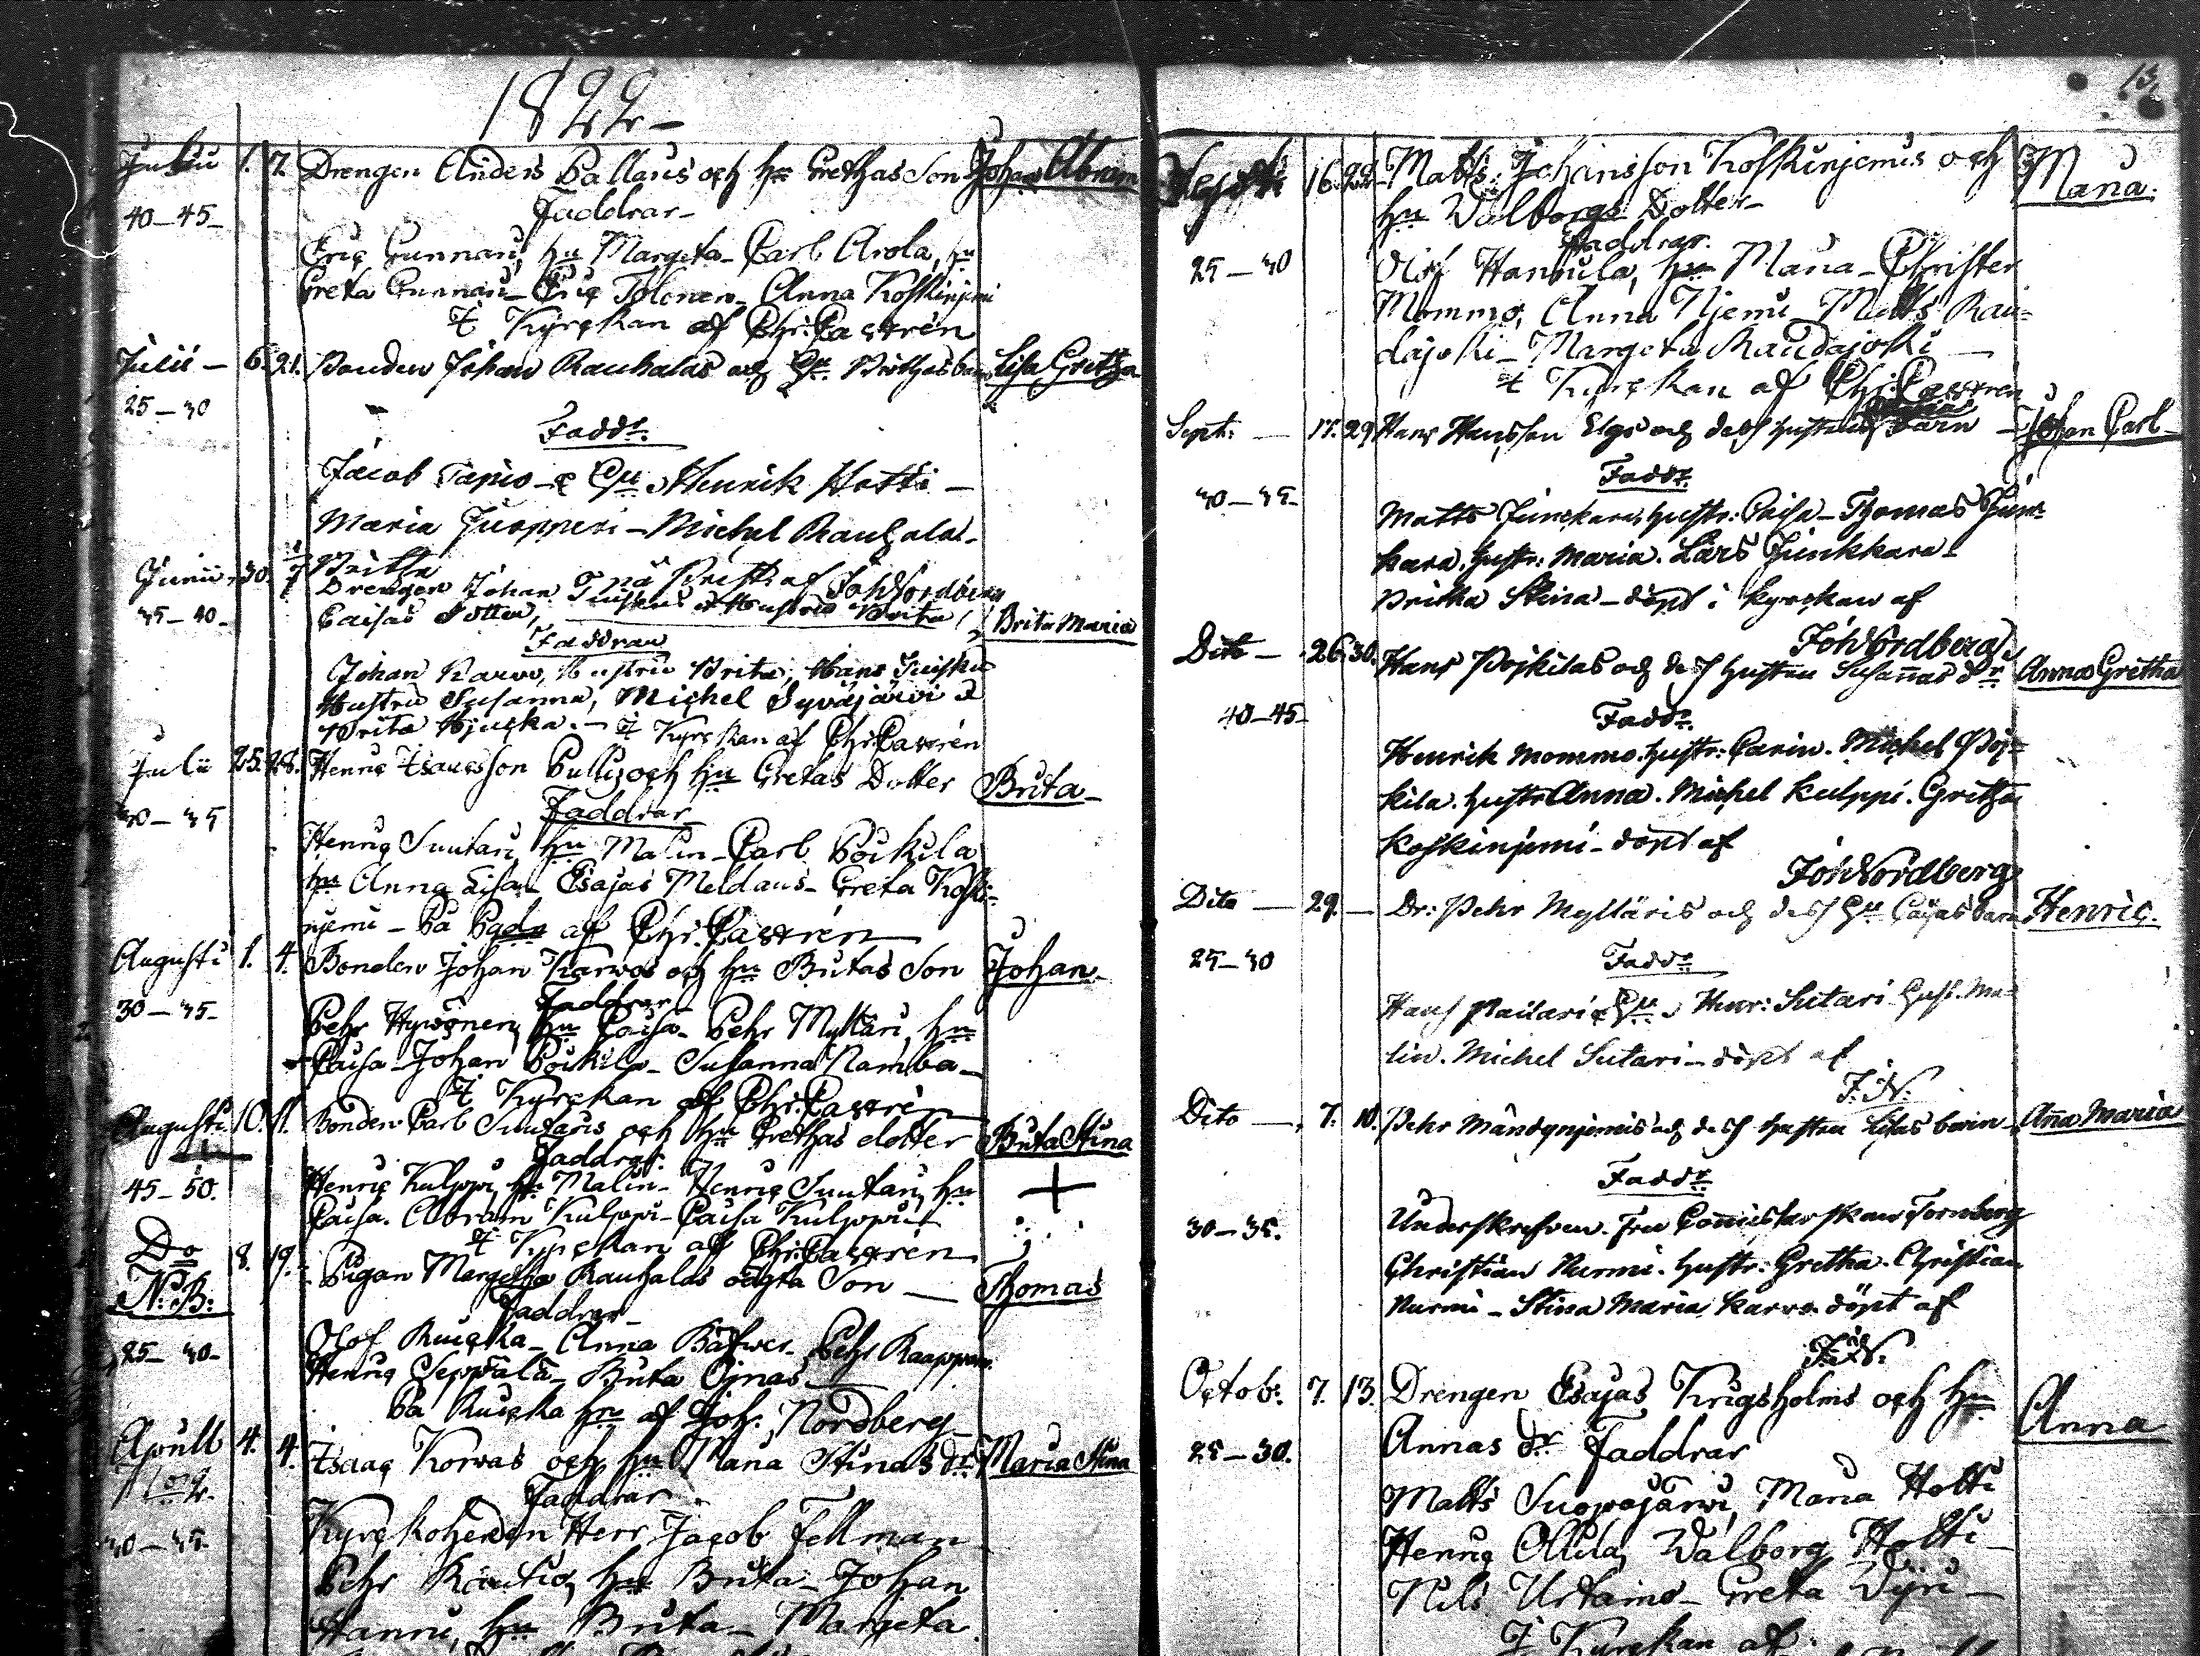 1822
Julii 1. 7. Drengen Anders Pallaris och hu Grethas Son Johan Abram
Faddrar
40-45
Eric Gunnari, hu Margeta Carl Arola, hu
Greta Gunnari Eric Tolonen Anna Koskinjemi
I Kyrckan af Chr: Castrén
Julii 6. 21. Bonden Johan Rauhalas och hu Brithas barn Lisa Gretha
25-30
Fadd:
Jacob Tapio & hu Henrik Hotti
Maria Juopperi Michel Rauhala
Britha af Joh Nordberg
Junii 30. 7 Drengen Johan
Caisas Dotter, Brita Maria
35-40
Faddrar
Johan Karvo, Hustru Brita, Hans
Hustru Susanna, Michel Syväjärvi &
Brita I Kyrckan af Chr: Castrén
Julii 25. 28. Henric Isacsson och hu Gretas Dotter Brita
Faddrar
30-35
Henric Suutari, hu Malin Carl Poikila
hu Anna Lisa Esajas Greta Koski-
njemi På af Chr: Castrén
Augusti 1. 4. Bonden Johan Karvos och hu Britas Son Johan
Faddrar
30-35
Pehr Hyvönen, hu Caisa Pehr Myllari, hu
Caisa Johan Poikila Susanna Ramba
I Kyrckan af Chr: Castrén
Augusti 10. 11. Bonden Carl Suutaris och hu Grethas dotter Brita Stina
Faddrar
45-50.
Henric Kulppi, hu Malin Henric Suutari, hu
Caisa. Abram Kulppi Caisa Kulppi
I Kyrckan af Chr: Castrén
Do 8. 19. Pigan Margetha Rauhalas oägta Son Thomas
N:B:
Faddrar
25-30
Olof Ruicka Anna Pehr
Henric Seppälä Brita Ojnas
På Ruicka hu af Joh: Nordberg
Aprill 4. 4. Isaac Korvas och hu Maria Stinas dr Maria Stina
Faddrar
30-35.
Kyrckoherden Herr Jacob Fellman
Pehr Rautio, hu Brita Johan
Hannu, hu Brita Margeta
Sept: 16. 22. Matts Johansson Koskinjemis och Maria.
hu Walborgs Dotter
Faddrar
25-30
Olof Hannula, hu Maria Christer
Mommo, Anna Njemi Matts Rau-
dajoki Margeta Raudajoki
I Kyrckan af Chr: Castren
Sept: 17. 29. Hans Hansson Elgs och dess hustrus barn Johan Carl
Fadd:
30-35
Matts Junckara, hustr: Caisa Thomas Jun-
kara. hustr: Maria. Lars Junkkara
Britha Stina döpt i kyrckan af
Joh Nordberg
Dito 26. 30. Hans Pojkilas och dess hustru Susannas dr Anna Gretha
40-45
Fadd:
Henrik Mommo. hustr: Carin. Michel Poj-
kila. hustr Anna. Michel Kulppi. Gretha
Koskinjemi döpt af
Joh Nordberg
Dito 29. Dr: Pehr Mylläris och dess hu Caisas barn Henric.
25-30
Fadd:
Hans Henr: Sutari hust. Ma-
lin. Michel Sutari döpt af
J:N:
Dito 7. 10. Pehr Mändynjemis och dess hustru Lisas barn Anna Maria
Fadd:
30-35.
Underskrefven. Fru Tornberg
Christian Nurmi. hustr: Gretha. Christian
Nurmi Stina Maria Karvo döpt af
J:N:
Octob: 7. 13. Drengen Esajas Krigsholms och hu Anna
Annas dr Faddrar
25-30.
Matts Suopajärvi, Maria Hotti
Henric Ollila, Walborg Hotti
Nils Urtamo Greta
I Kyrckan af